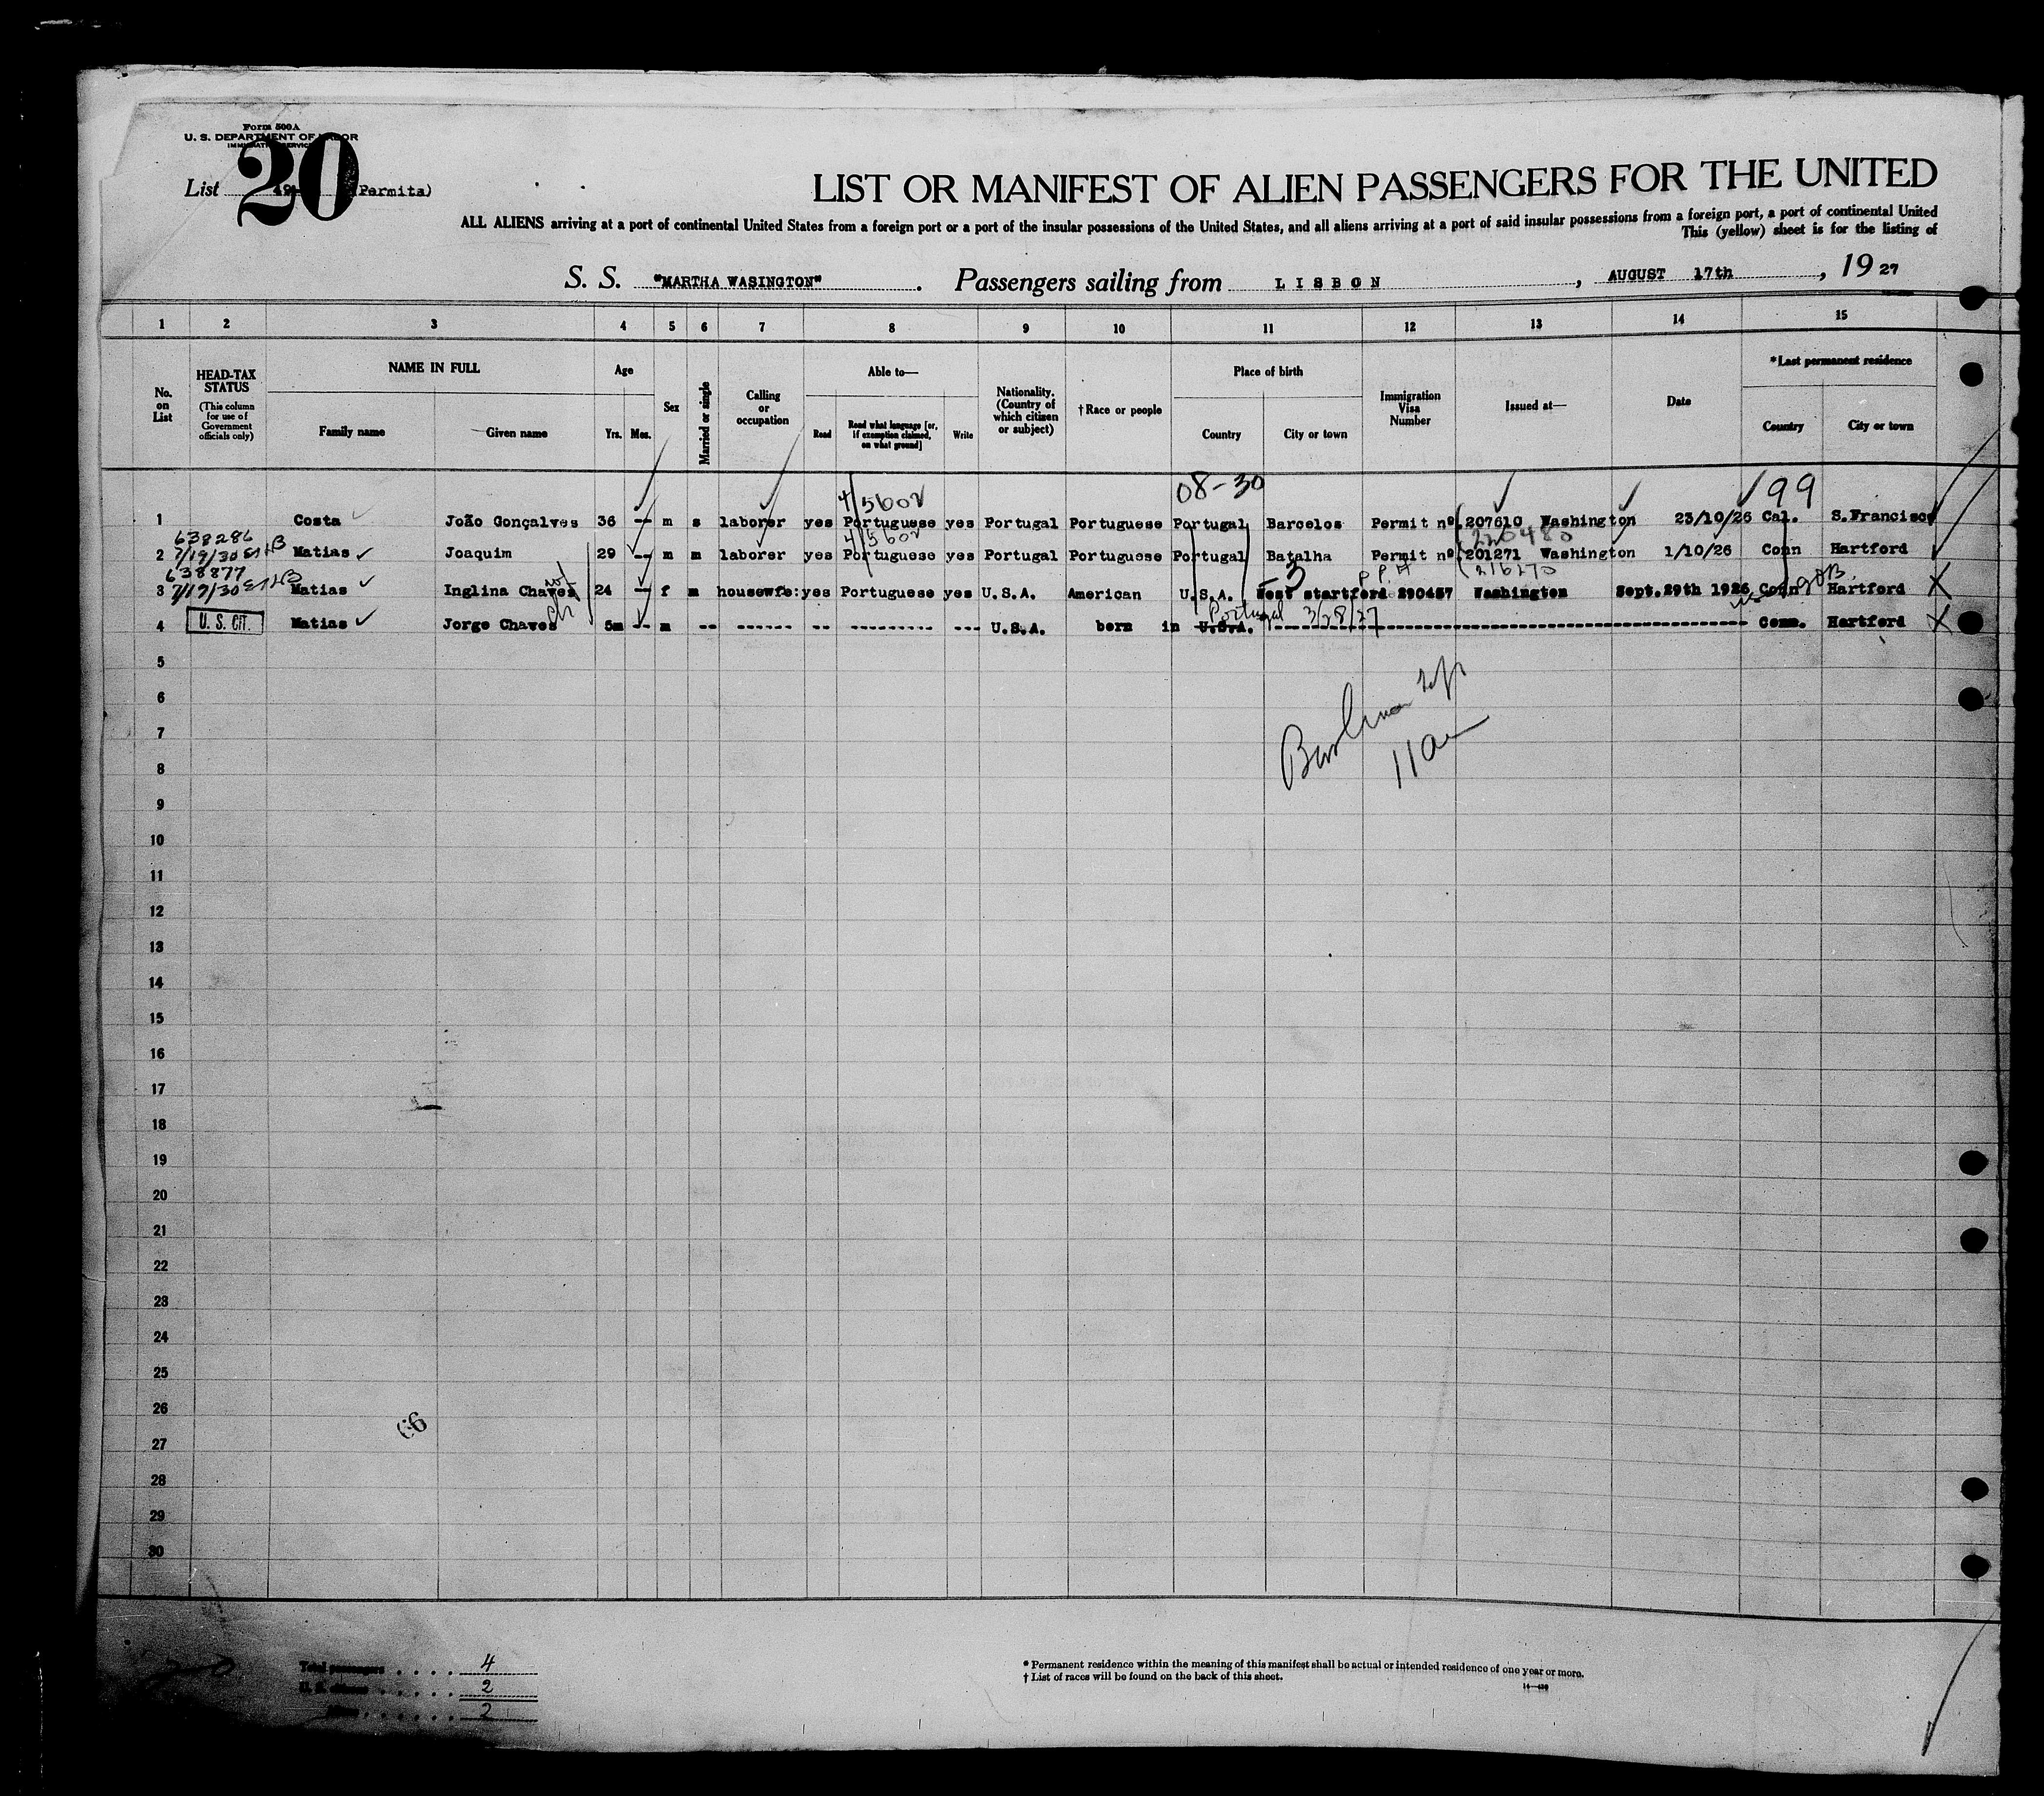 Form 500A
U. S. DEPARTMENT OF LABOR
IMMIGRATION SERVICE
20
List 49 (Permits)
LIST OR MANIFEST OF ALIEN PASSENGERS FOR THE UNITED
ALL ALIENS arriving at a port of continental United States from a foreign port or a port of the insular possessions of the United States, and all aliens arriving at a port of said insular possessions from a foreign port, a port of continental United
This (yellow) sheet is for the listing of
S. S. "MARTHA WASINGTON". Passengers sailing from LISBON, AUGUST 17th, 1927
1 2 3 4 5 6 7 8 9 10 11 12 13 14 15
No. on List
HEAD-TAX STATUS (This column for use of Government officials only)
NAME IN FULL
Family name Given name
Age
Yrs. Mos.
Sex
Married or single
Calling or occupation
Able to—
Read Read what language [or, if exemption claimed, on what ground] Write
Nationality. (Country of which citizen or subject)
†Race or people
Place of birth
Country City or town
Immigration Visa Number
Issued at—
Date
*Last permanent residence
Country City or town
4/5602 08-30 99
1 Costa João Gonçalves 36 -- m s laborer yes Portuguese yes Portugal Portuguese Portugal Barcelos Permit nº 207610 Washington 23/10/26 Cal. S.Francisco
638286 4/5602 220480
2 7/19/30 Matias Joaquim 29 -- m m laborer yes Portuguese yes Portugal Portuguese Portugal Batalha Permit nº 201271 Washington 1/10/26 Conn Hartford
638877 3 P.P.# 216270
3 7/19/30 Matias Inglina Chaves 24 -- f m housewfe: yes Portuguese yes U.S.A. American U.S.A. West startford 290457 Washington Sept.29th 1926 Conn Hartford
Portugal 3/28/27
4 U. S. CIT. Matias Jorge Chaves 5m -- m -- ------ -- --------- --- U.S.A. born in U.S.A. ---------- Conn. Hartford
5
6
7
11am
8
9
10
11
12
13
14
15
16
17
18
19
20
21
22
23
24
25
26
66
27
28
29
30
Total passengers . . . . 4
U. S. citizens . . . . . 2
Aliens . . . . . . 2
* Permanent residence within the meaning of this manifest shall be actual or intended residence of one year or more.
† List of races will be found on the back of this sheet.
14—430